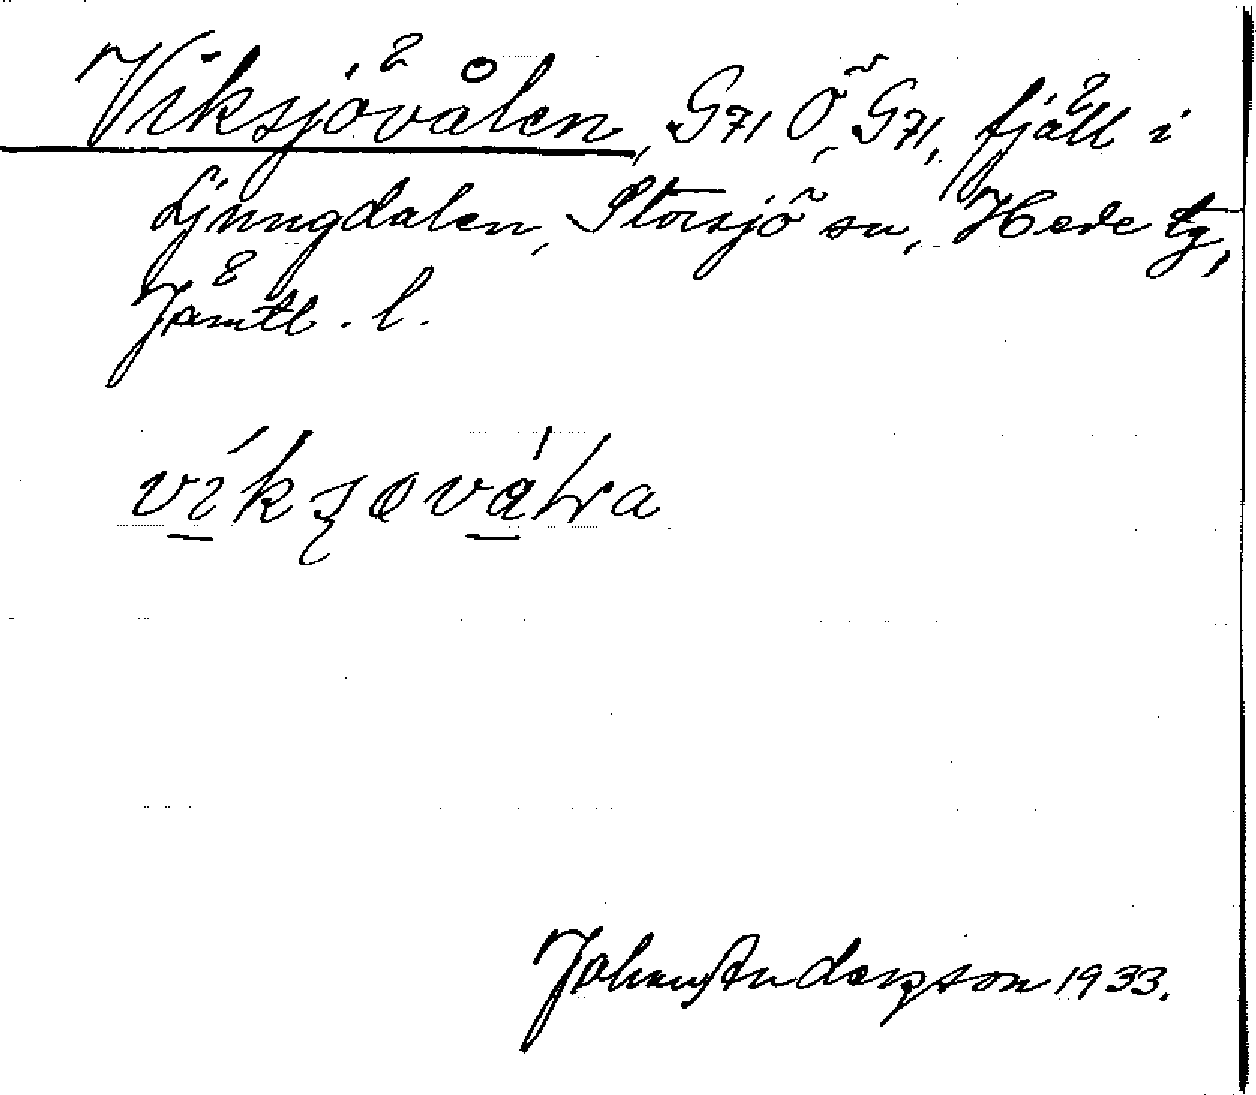 Viksjövålen, G71 Ö, G71, fjäll i
Ljungdalen, Storsjö sn, Hede tg,
Jämtl. l.
Johan Anderson 1933.